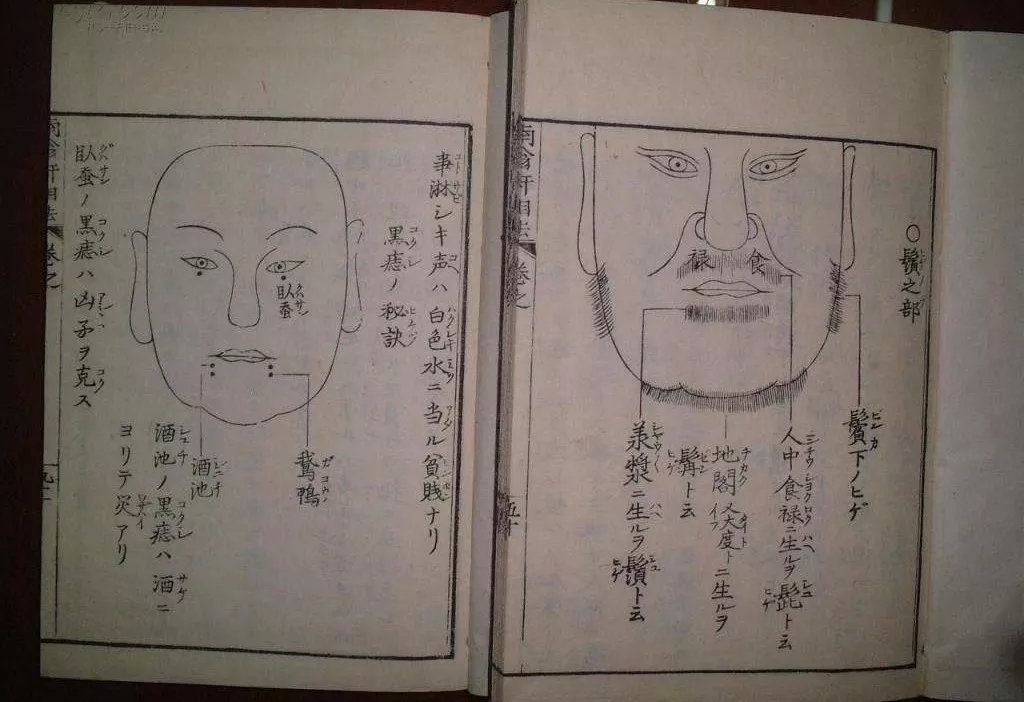 〇鬚之部
食禄
鬢下ノヒゲ
人中食禄ニ生ルヲ髭ト云
地閣又大度トニ生ルヲ
髯ト云
承漿ニ生ルヲ鬚ト云
南翁軒相法 巻之
五十
事淋シキ声ハ白色水ニ当ル貧賎ナリ
黒痣ノ秘訣
臥蚕
鵝鴨
酒池
酒池ノ黒痣ハ酒ニ
ヨリテ災アリ
臥蚕ノ黒痣ハ凶子ヲ克ス
南翁軒相法 巻之